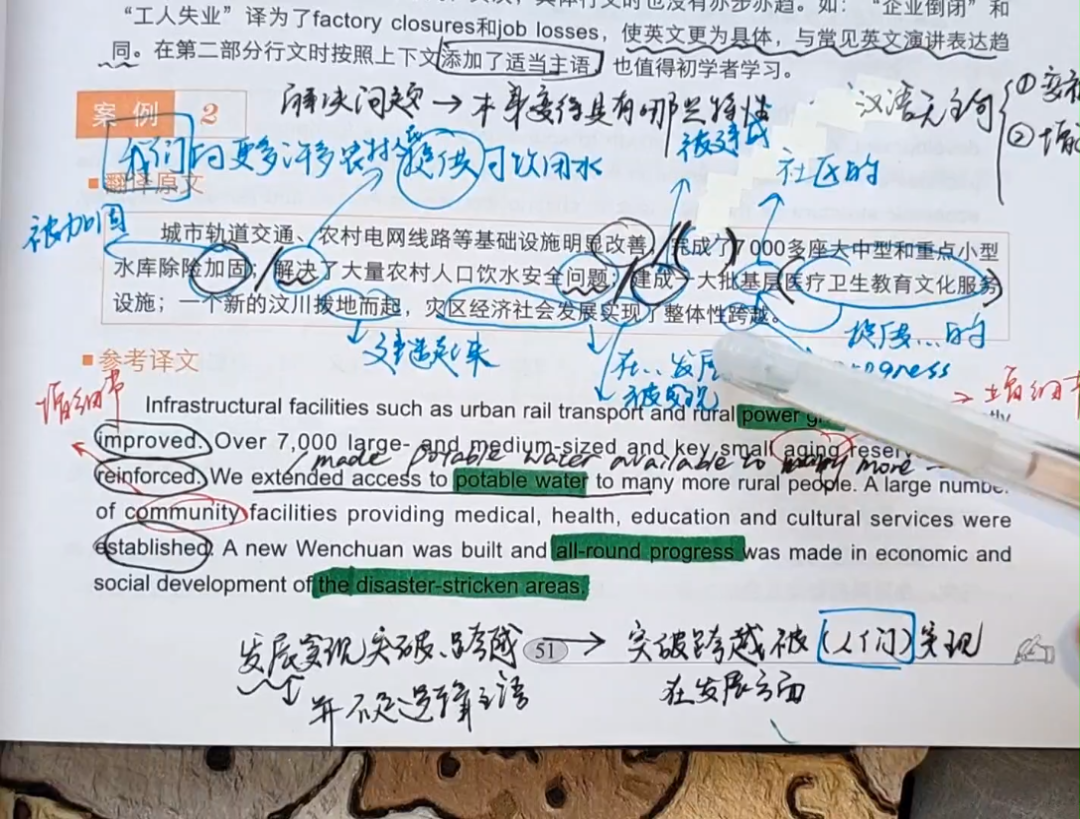 "工人失业"译为了factory closures和job losses，使英文更为具体，与常见英文演讲表达趋
同。在第二部分行文时按照上下文添加了适当主语，也值得初学者学习。
案例 2
解决问题 → 本身变得具有哪些特性
汉语无主句
①变被
②增
被建成
我们向更多许多农村人民提供可饮用水
社区的
翻译原文
被加固
城市轨道交通、农村电网线路等基础设施明显改善；完成了7 000多座大中型和重点小型
水库除险加固；解决了大量农村人口饮水安全问题；建成一大批基层医疗卫生教育文化服务
设施；一个新的汶川拨地而起，灾区经济社会发展实现了整体性跨越。
被建造起来
在...发展
被实现
提供...的
progress
参考译文
增细节
→ 增细节
Infrastructural facilities such as urban rail transport and rural power
improved. Over 7,000 large- and medium-sized and key small aging
made potable water available to many more
reinforced. We extended access to potable water to many more rural people. A large number
of community facilities providing medical, health, education and cultural services were
established. A new Wenchuan was built and all-round progress was made in economic and
social development of the disaster-stricken areas.
发展实现突破、跨越 → 突破跨越被(人们)实现
51
并不是逻辑主语
在发展方面